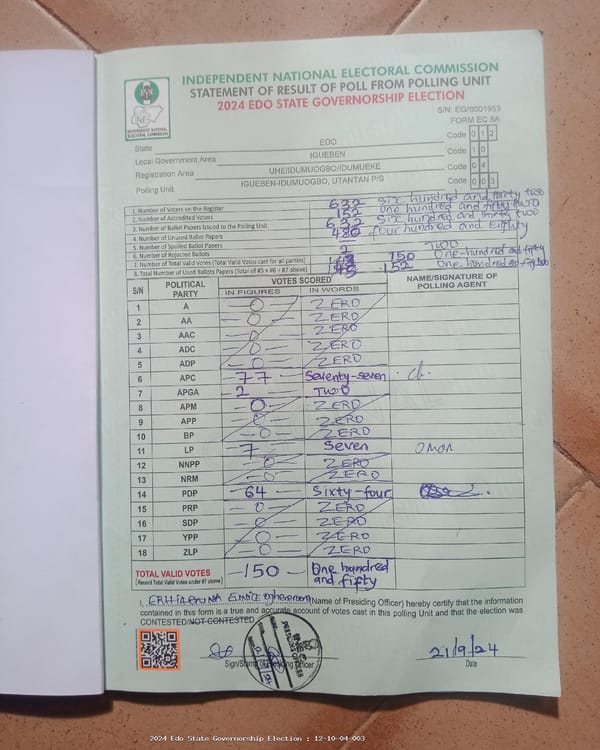 INDEPENDENT NATIONAL ELECTORAL COMMISSION
STATEMENT OF RESULT OF POLL FROM POLLING UNIT
2024 EDO STATE GOVERNORSHIP ELECTION
INDEPENDENT NATIONAL ELECTORAL COMMISSION
S/N: EG/0001953
FORM EC 8A
State EDO Code 0 1 2
Local Government Area IGUEBEN Code 1 0
Registration Area UHE/IDUMUOGBO/IDUMUEKE Code 0 4
Polling Unit IGUEBEN-IDUMUOGBO, UTANTAN P/S Code 0 0 3
1. Number of Voters on the Register 632 Six hundred and thirty two
2. Number of Accredited Voters 152 One hundred and fifty two
3. Number of Ballot Papers Issued to the Polling Unit 632 Six hundred and thirty two
4. Number of Unused Ballot Papers 480 four hundred and eighty
5. Number of Spoiled Ballot Papers
6. Number of Rejected Ballots 2 TWO
7. Number of Total Valid Votes (Total Valid Votes cast for all parties) 150 One-hundred and fifty
8. Total Number of Used Ballots Papers (Total of #5 + #6 + #7 above) 152 One hundred and
S/N POLITICAL PARTY VOTES SCORED NAME/SIGNATURE OF POLLING AGENT
IN FIGURES IN WORDS
1 A 0 ZERO
2 AA 0 ZERO
3 AAC 0 ZERO
4 ADC 0 ZERO
5 ADP 0 ZERO
6 APC 77 Seventy-seven
7 APGA 2 TWO
8 APM 0 ZERO
9 APP 0 ZERO
10 BP 0 ZERO
11 LP 7 Seven OMON
12 NNPP 0 ZERO
13 NRM 0 ZERO
14 PDP 64 Sixty-four
15 PRP 0 ZERO
16 SDP 0 ZERO
17 YPP 0 ZERO
18 ZLP 0 ZERO
TOTAL VALID VOTES 150 One hundred and fifty
(Record Total Valid Votes under #7 above)
I, (Name of Presiding Officer) hereby certify that the information
contained in this form is a true and accurate account of votes cast in this polling Unit and that the election was
CONTESTED/NOT CONTESTED
21/9/24
Sign/Stamp of Presiding Officer Date
2024 Edo State Governorship Election : 12-10-04-003